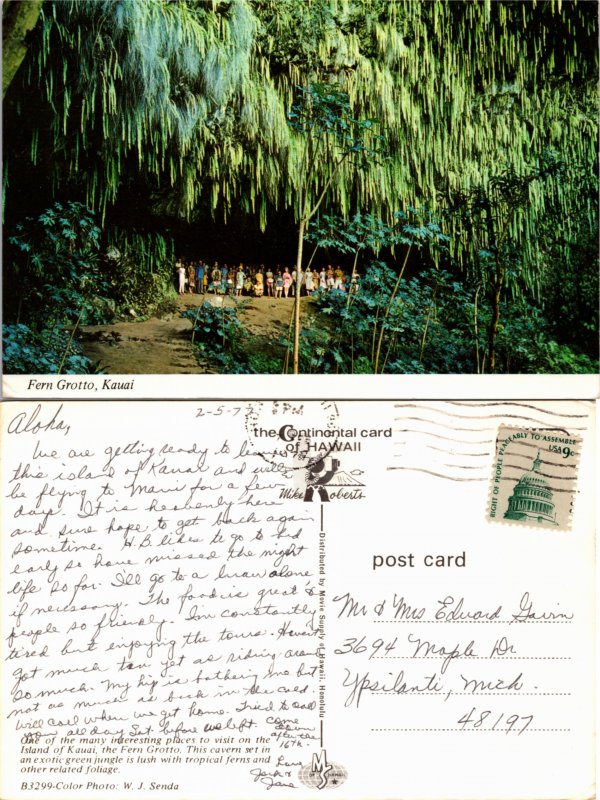 Fern Grotto, Kauai
Aloha,
2-5-77
We are getting ready to leave
this island of Kauai and will
be flying to Maui for a few
days. It is heavenly here
and sure hope to get back again
sometime. H.B. likes to go to bed
early so have missed the night
life so far. I'll go to a luau alone
if necessary. The food is great &
people so friendly. I'm constantly
tired but enjoying the tours. Haven't
got much tan yet as riding around
so much. My hip is bothering me but
not as much as back in the cold.
Will call when we get home. Tried to call
you all day Sat. before we left. Come
down
after the
16th.
Love,
Jack &
One of the many interesting places to visit on the
Island of Kauai, the Fern Grotto. This cavern set in
an exotic green jungle is lush with tropical ferns and
other related foliage.
B3299-Color Photo: W. J. Senda
PM
the Continental card
of HAWAII
Mike Roberts
Distributed by Movie Supply of Hawaii, Honolulu
MS
OF HAWAII
RIGHT OF PEOPLE PEACEABLY TO ASSEMBLE
USA 9c
post card
Mr & Mrs Edward Gavin
3694 Maple Dr
Ypsilanti, Mich.
48197